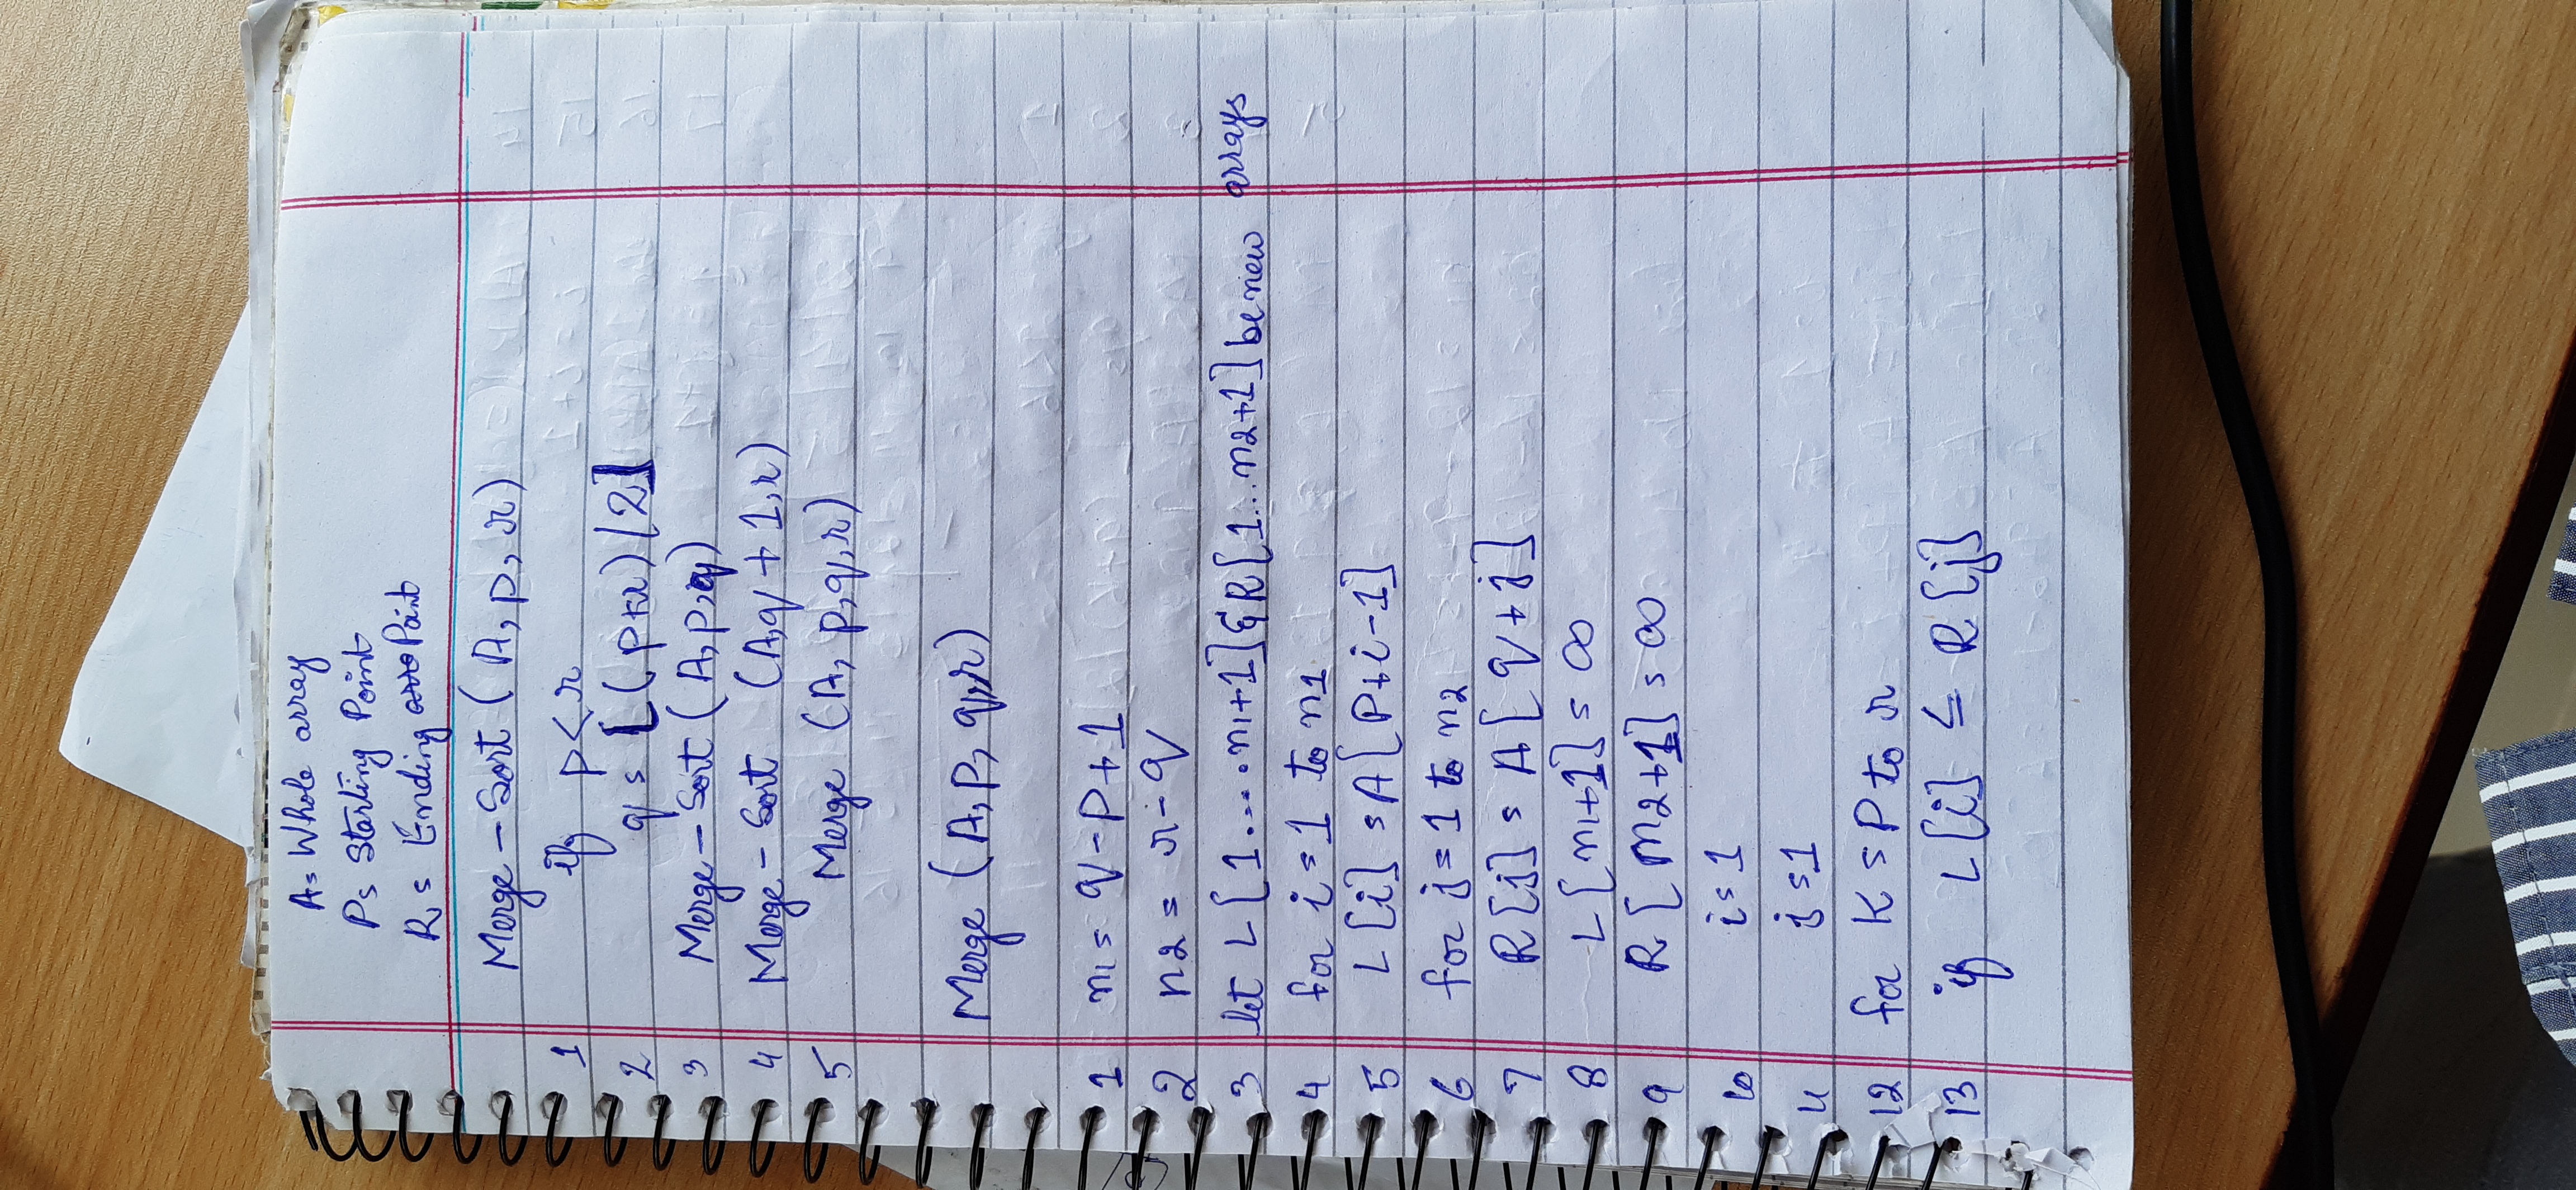 A = Whole array
P = Starting Point
R = Ending Point
Merge - Sort (A, p, r)
1 if p < r
2 q = ⌊(p+r)/2⌋
3 Merge - Sort (A, p, q)
4 Merge - Sort (A, q + 1, r)
5 Merge (A, p, q, r)
Merge (A, p, q, r)
1 n1 = q - p + 1
2 n2 = r - q
3 let L[1....n1+1] & R[1...n2+1] be new arrays
4 for i = 1 to n1
5 L[i] = A[P+i-1]
6 for j = 1 to n2
7 R[j] = A[q+j]
8 L[n1+1] = ∞
9 R[n2+1] = ∞
10 i = 1
11 j = 1
12 for K = P to r
13 if L[i] ≤ R[j]